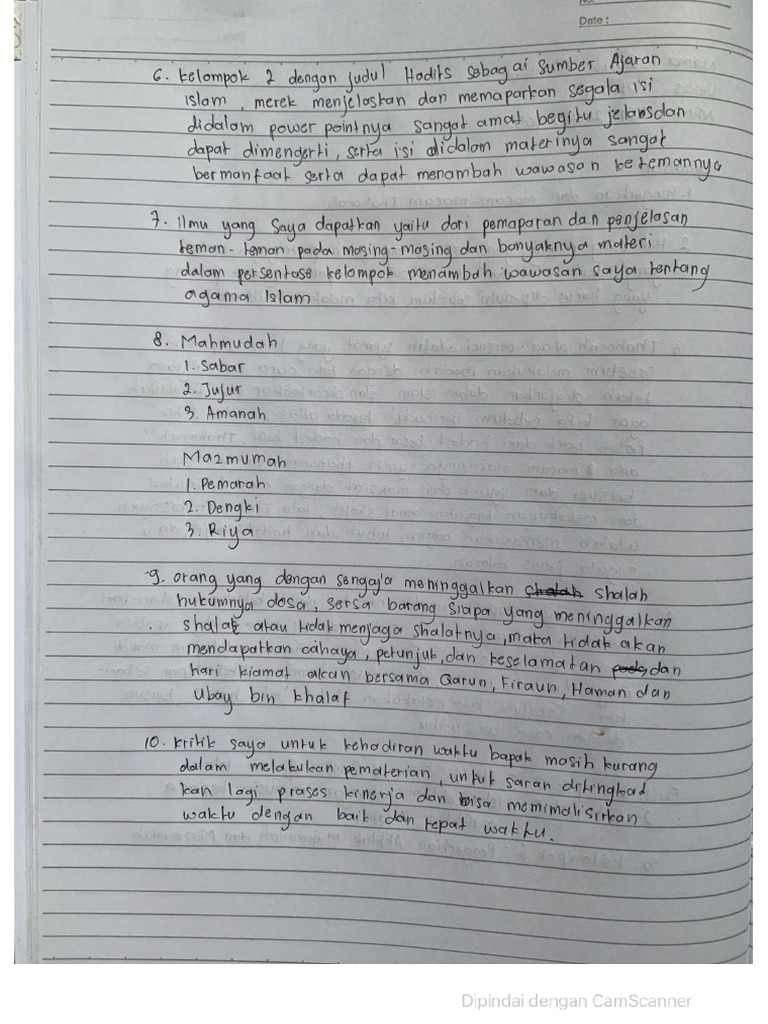 No.
Date :
6. Kelompok 2 dengan judul Hadits sebagai Sumber Ajaran
Islam, merek menjelaskan dan memaparkan segala isi
didalam power pointnya sangat amat begitu jelas dan
dapat dimengerti, serta isi didalam materinya sangat
bermanfaat serta dapat menambah wawasan ke temannya
7. Ilmu yang saya dapatkan yaitu dari pemaparan dan penjelasan
teman-teman pada masing-masing dan banyaknya materi
dalam persentase kelompok menambah wawasan saya tentang
agama Islam
8. Mahmudah
1. Sabar
2. Jujur
3. Amanah
Mazmumah
1. Pemarah
2. Dengki
3. Riya
9. orang yang dengan sengaja meninggalkan shalah
hukumnya dosa, sersa barang siapa yang meninggalkan
shalat atau tidak menjaga shalatnya, maka tidak akan
mendapatkan cahaya, petunjuk, dan keselamatan dan
hari kiamat akan bersama Qarun, Firaun, Haman dan
Ubay bin khalaf
10. Kritik saya untuk kehadiran waktu bapak masih kurang
dalam melakukan pematerian, untuk saran ditingkat
kan lagi prases kinerja dan bisa memimalisirkan
waktu dengan baik dan tepat waktu.
Dipindai dengan CamScanner